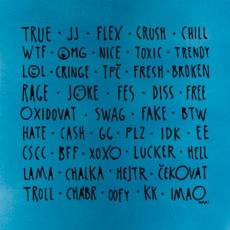 TRUE · JJ · FLEX · CRUSH · CHILL
WTF · OMG · NICE · TOXIC · TRENDY
LOL · CRINGE · TPČ · FRESH · BROKEN
RAGE · JOKE · FES · DISS · FREE
OXIDOVAT · SWAG · FAKE · BTW
HATE · CASH · GG · PLZ · IDK · EE
CSCC · BFF · XOXO · LUCKER · HELL
LAMA · CHALKA · HEJTR · ČEKOVAT
TROLL · CHÁBR · OOFY · KK · LMAO